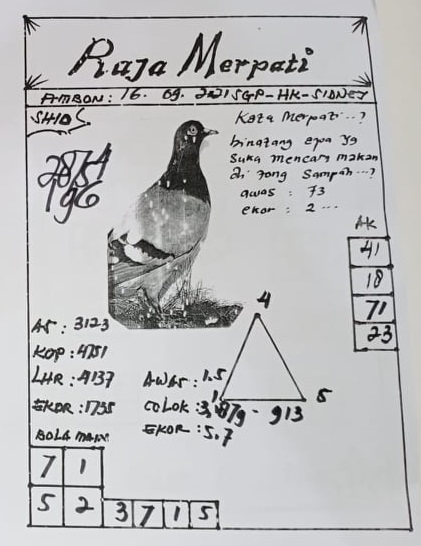 Raja Merpati
AMBON: 16. 09. 2021 SGP-HK-SIDNEY
SHIO
Kata Merpati...?
binatang apa yg
suka mencari makan
di tong sampah...?
awas : 73
ekor : 2 ...
196
AK
41
18
71
23
4
1
5
AS : 3123
KOP : 4751
LHR : 9137
EKOR : 1735
AWAS : 1.5
COLOK : 3, 879 - 913
EKOR : 5.7
BOLA MAIN
7 1
5 2
3 7 1 5